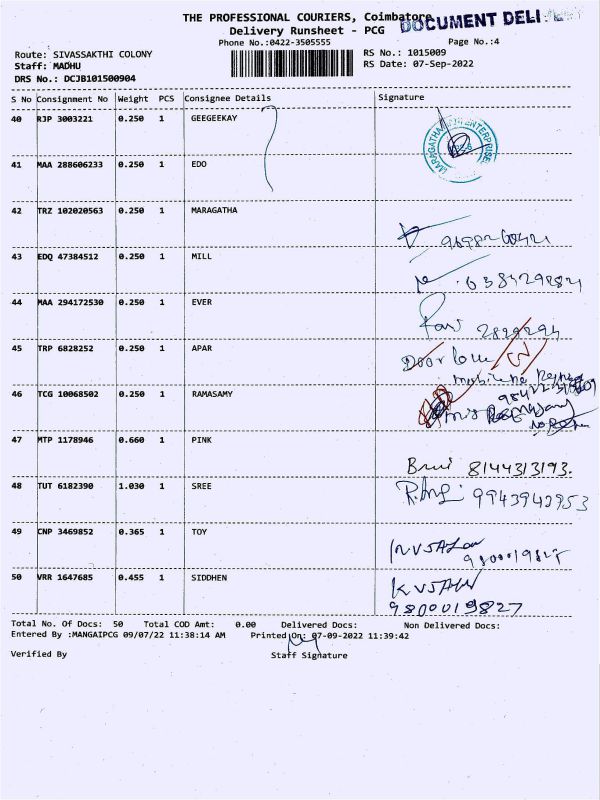 THE PROFESSIONAL COURIERS, Coimbatore
DOCUMENT DELI
Delivery Runsheet - PCG
Phone No.:0422-3505555
Page No.:4
Route: SIVASSAKTHI COLONY
RS No.: 1015009
Staff: MADHU
RS Date: 07-Sep-2022
DRS No.: DCJB101500904
S No Consignment No Weight PCS Consignee Details Signature
40 RJP 3003221 0.250 1 GEEGEEKAY
MARAGATHA ENTERPRISES
41 MAA 288606233 0.250 1 EDO
42 TRZ 102020563 0.250 1 MARAGATHA
43 EDQ 47384512 0.250 1 MILL
44 MAA 294172530 0.250 1 EVER
Ravi 2829294
45 TRP 6828252 0.250 1 APAR
Door lock
46 TCG 10068502 0.250 1 RAMASAMY
47 MTP 1178946 0.660 1 PINK
8144313193.
48 TUT 6182390 1.030 1 SREE
9943942953
49 CNP 3469852 0.365 1 TOY
9800019827
50 VRR 1647685 0.455 1 SIDDHEN
9800019827
Total No. Of Docs: 50 Total COD Amt: 0.00 Delivered Docs: Non Delivered Docs:
Entered By :MANGAIPCG 09/07/22 11:38:14 AM Printed On: 07-09-2022 11:39:42
Verified By Staff Signature